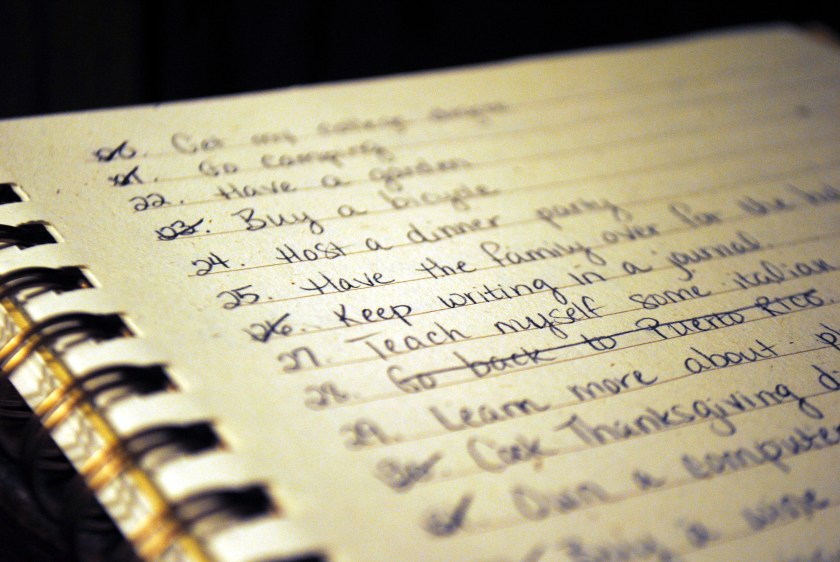 20. Get my college degree
21. Go camping
22. Have a garden
23. Buy a bicycle
24. Host a dinner party
25. Have the family over for the
26. Keep writing in a journal.
27. Teach myself some italian
28. Go back to Puerto Rico
29. Learn more about
30. Cook Thanksgiving
31. Own a computer
Buy a wine